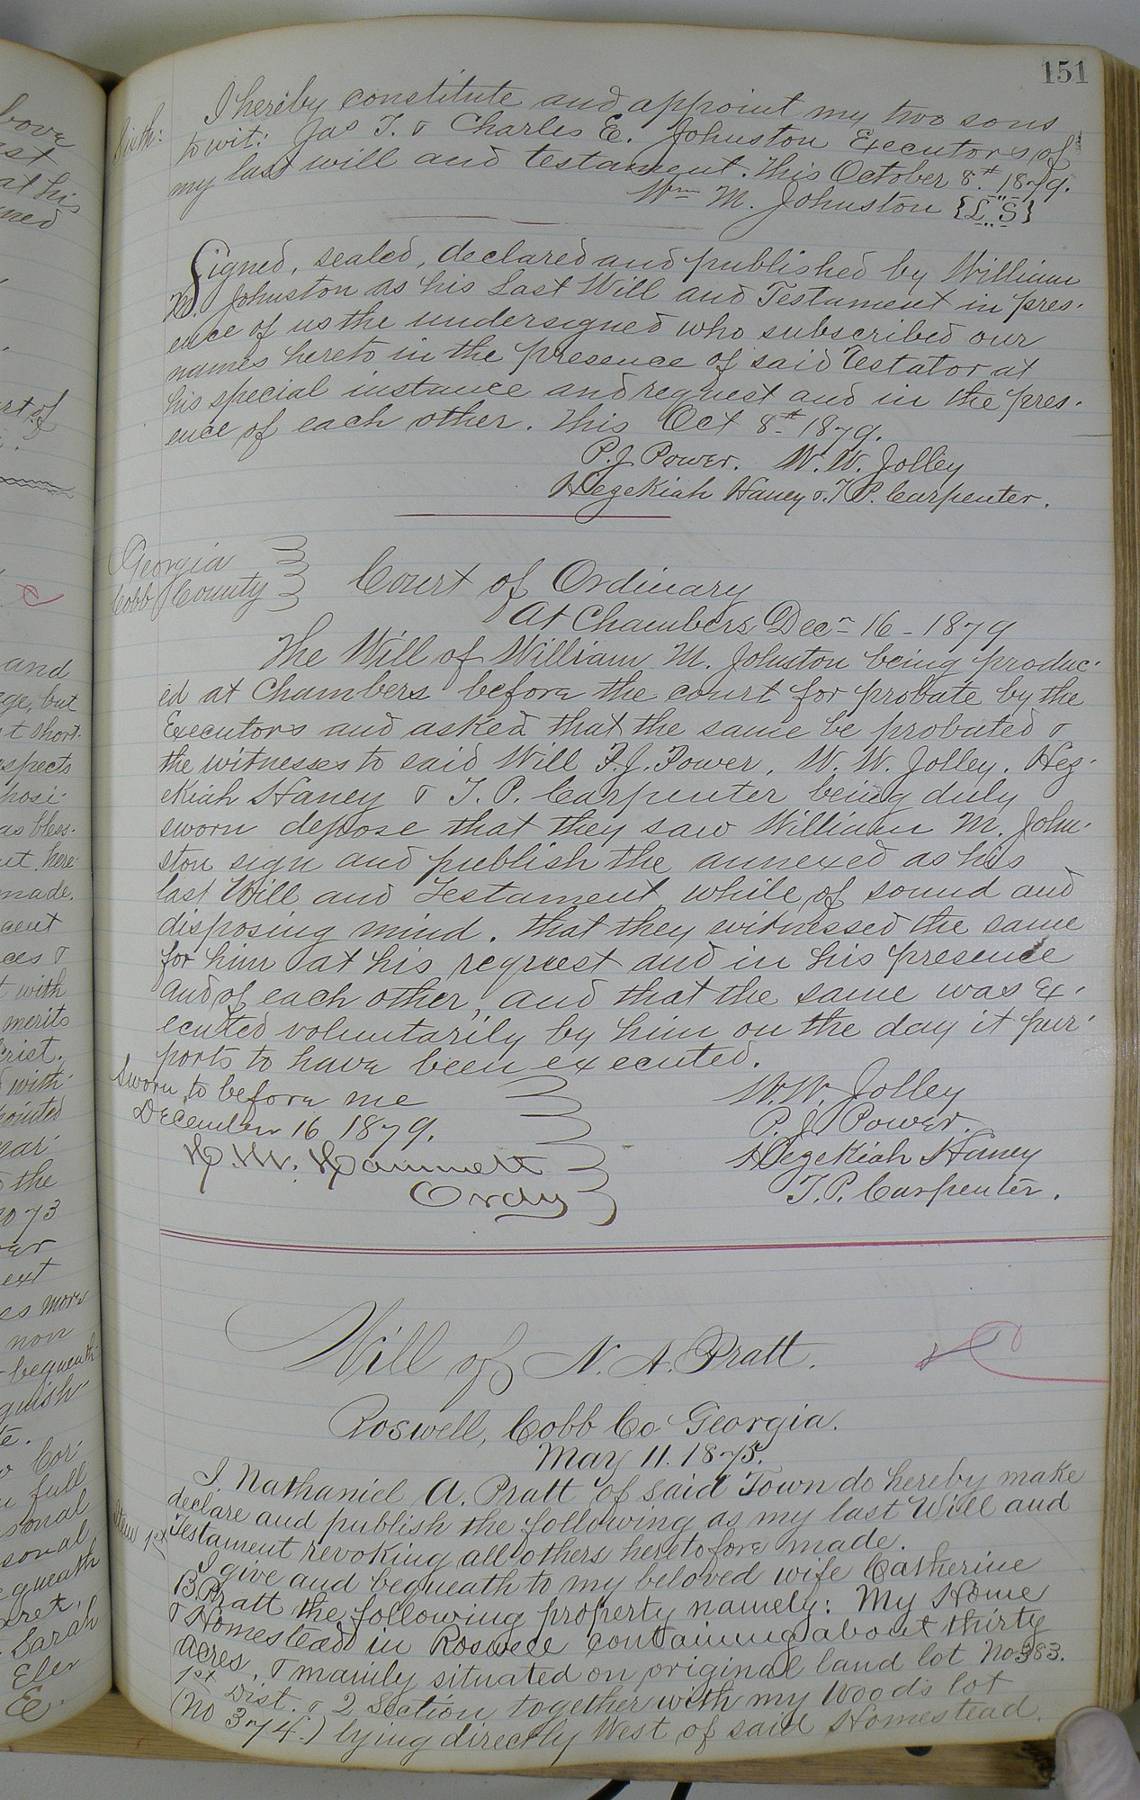 151
I hereby constitute and appoint my two sons
to wit: Jas T. & Charles E. Johnston Executors of
my last will and testament. This October 8th 1879.
Wm M. Johnston {L.S}
Signed, sealed, declared and published by William
M. Johnston as his Last Will and Testament in pres-
ence of us the undersigned who subscribed our
names hereto in the presence of said Testator at
his special instance and request and in the pres-
ence of each other. This Oct 8th 1879.
P. J Power. W. W. Jolley
Hezekiah Haney & T. P. Carpenter.
Georgia
Cobb County
Court of Ordinary
At Chambers Decr 16 - 1879
The Will of William M. Johnston being produc-
ed at Chambers before the court for probate by the
Executors and asked that the same be probated &
the witnesses to said Will P. J. Power, W. W. Jolley. Hez-
ekiah Haney & T. P. Carpenter being duly
sworn depose that they saw William M. John-
ston sign and publish the annexed as his
last Will and Testament while of sound and
disposing mind. that they witnessed the same
for him at his request and in his presence
and of each other, and that the same was ex-
ecuted voluntarily by him on the day it pur-
ports to have been executed.
Sworn to before me
December 16 1879.
H. M. Hammett
Ordy
W. W. Jolley
P. J. Power.
Hezekiah Haney
T. P. Carpenter.
Will of N. A. Pratt.
Roswell, Cobb Co Georgia.
May 11. 1875.
I. Nathaniel A. Pratt of said Town do hereby make
declare and publish the following as my last Will and
Testament revoking all others heretofore made.
Item 1st
I give and bequeath to my beloved wife Catherine
B. Pratt the following property namely: My Home
& Homestead in Roswell containing about thirty
acres, & mainly situated on original land lot No 383.
1st Dist. & 2 Section together with my Woods lot
(No 374.) lying directly West of said Homestead.